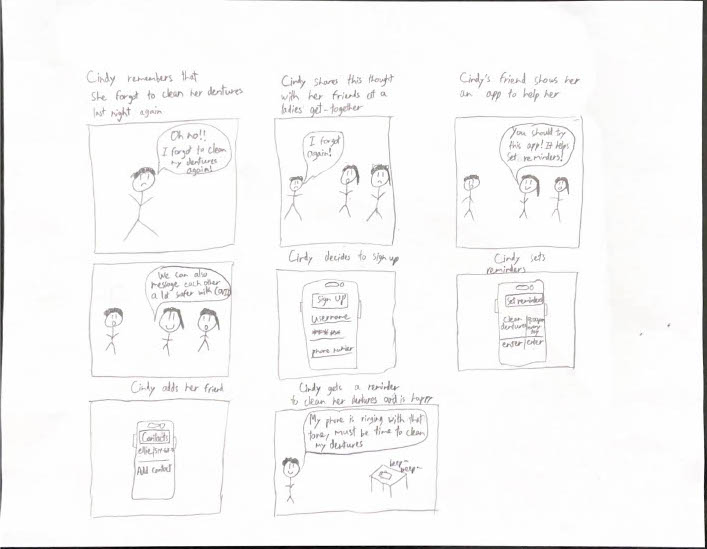 Cindy remembers that
she forgot to clean her dentures
last night again
Oh no!!
I forgot to clean
my dentures
again!
Cindy shares this thought
with her friends at a
ladies get-together
I forgot
again!
Cindy's friend shows her
an app to help her
You should try
this app! It helps
set reminders!
We can also
message each other
a lot safer with COVID
Cindy decides to sign up
Sign Up
Username
phone number
Cindy sets
reminders
Set reminders
clean
dentures
enter
enter
Cindy adds her friend
Contacts
Add contact
Cindy gets a reminder
to clean her dentures and is happy
My phone is ringing with that
tone, must be time to clean
my dentures
beep~
beep~